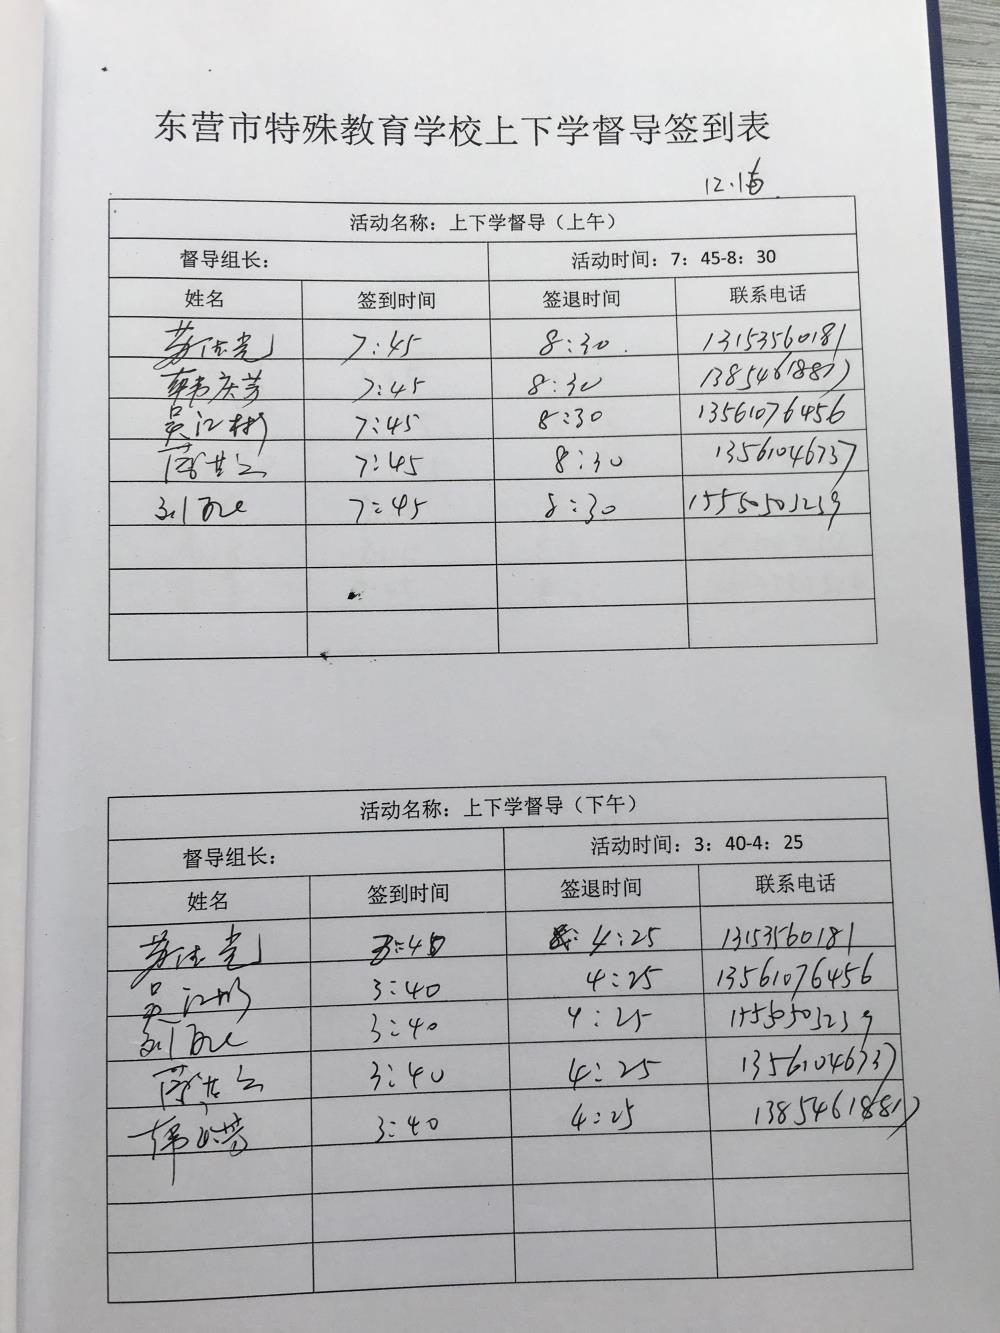 东营市特殊教育学校上下学督导签到表
活动名称：上下学督导（上午）
督导组长： 活动时间：7：45-8：30
姓名 签到时间 签退时间 联系电话
7:45 8:30 13153560181
韩庆芳 7:45 8:30
吴江彬 7:45 8:30 13561076456
7:45 8:30 13561046737
7:45 8:30 15550503239
活动名称：上下学督导（下午）
督导组长： 活动时间：3：40-4：25
姓名 签到时间 签退时间 联系电话
4:25 13153560181
吴江彬 3:40 4:25 13561076456
3:40 4:25 15550503239
3:40 4:25 13561046737
3:40 4:25